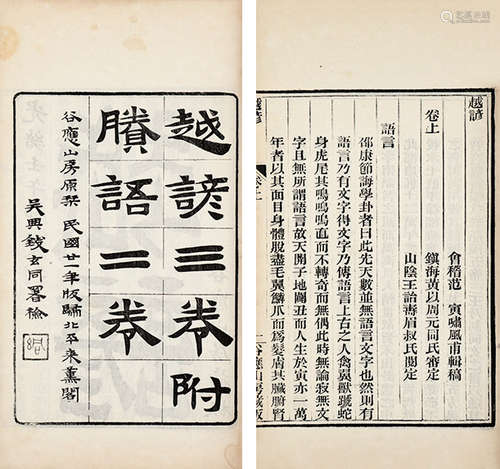 越諺三卷附
賸語二卷
谷應山房原槧 民國廿年版歸北平來薰閣
吳興錢玄同署檢
越諺
卷上
會稽范 寅嘯風甫輯稿
鎮海黃以周元同氏審定
山陰王詒壽眉叔氏閱定
語言
邵康節誨學卦者曰此先天數並無語言文字也然則有
語言乃有文字得文字乃傳語言上古之人禽翼獸蹏蛇
身虎尾其鳴嗚嗚直而不轉奇而無偶此時無論寂無文
字且無所謂語言故天開子地闢丑而人生於寅亦一萬
年者以其面目身體脫盡毛翼鱗爪而為髮膚其臟腑腎
越諺